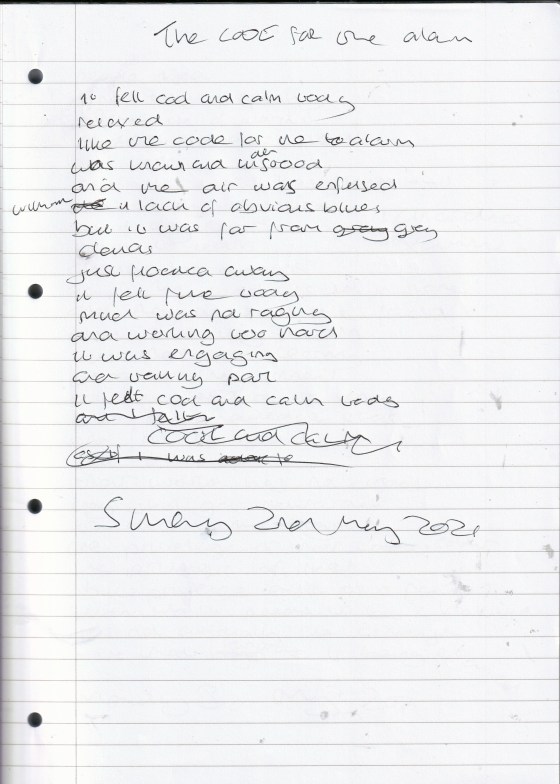 The code for the alarm
it felt cool and calm today
relaxed
like the code for the alarm
was known and understood
and the air was enfused
with a lack of obvious blues
but it was far from grey
clouds
just floated away
it felt fine today
much was not raging
and working too hard
it was engaging
and taking part
it felt cool and calm today
and I felt
cool and calm
as if I was able to
Sunday 2nd May 2021